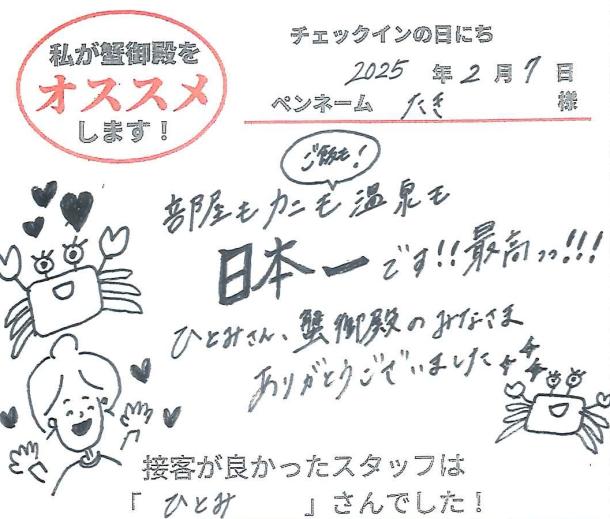 私が蟹御殿を
オススメ
します！
チェックインの日にち
2025 年 2 月 7 日
ペンネーム たき 様
ご飯も！
部屋もカニも温泉も
日本一です!!最高っっ!!!
ひとみさん、蟹御殿のみなさま
ありがとうございました
接客が良かったスタッフは
「 ひとみ 」さんでした！